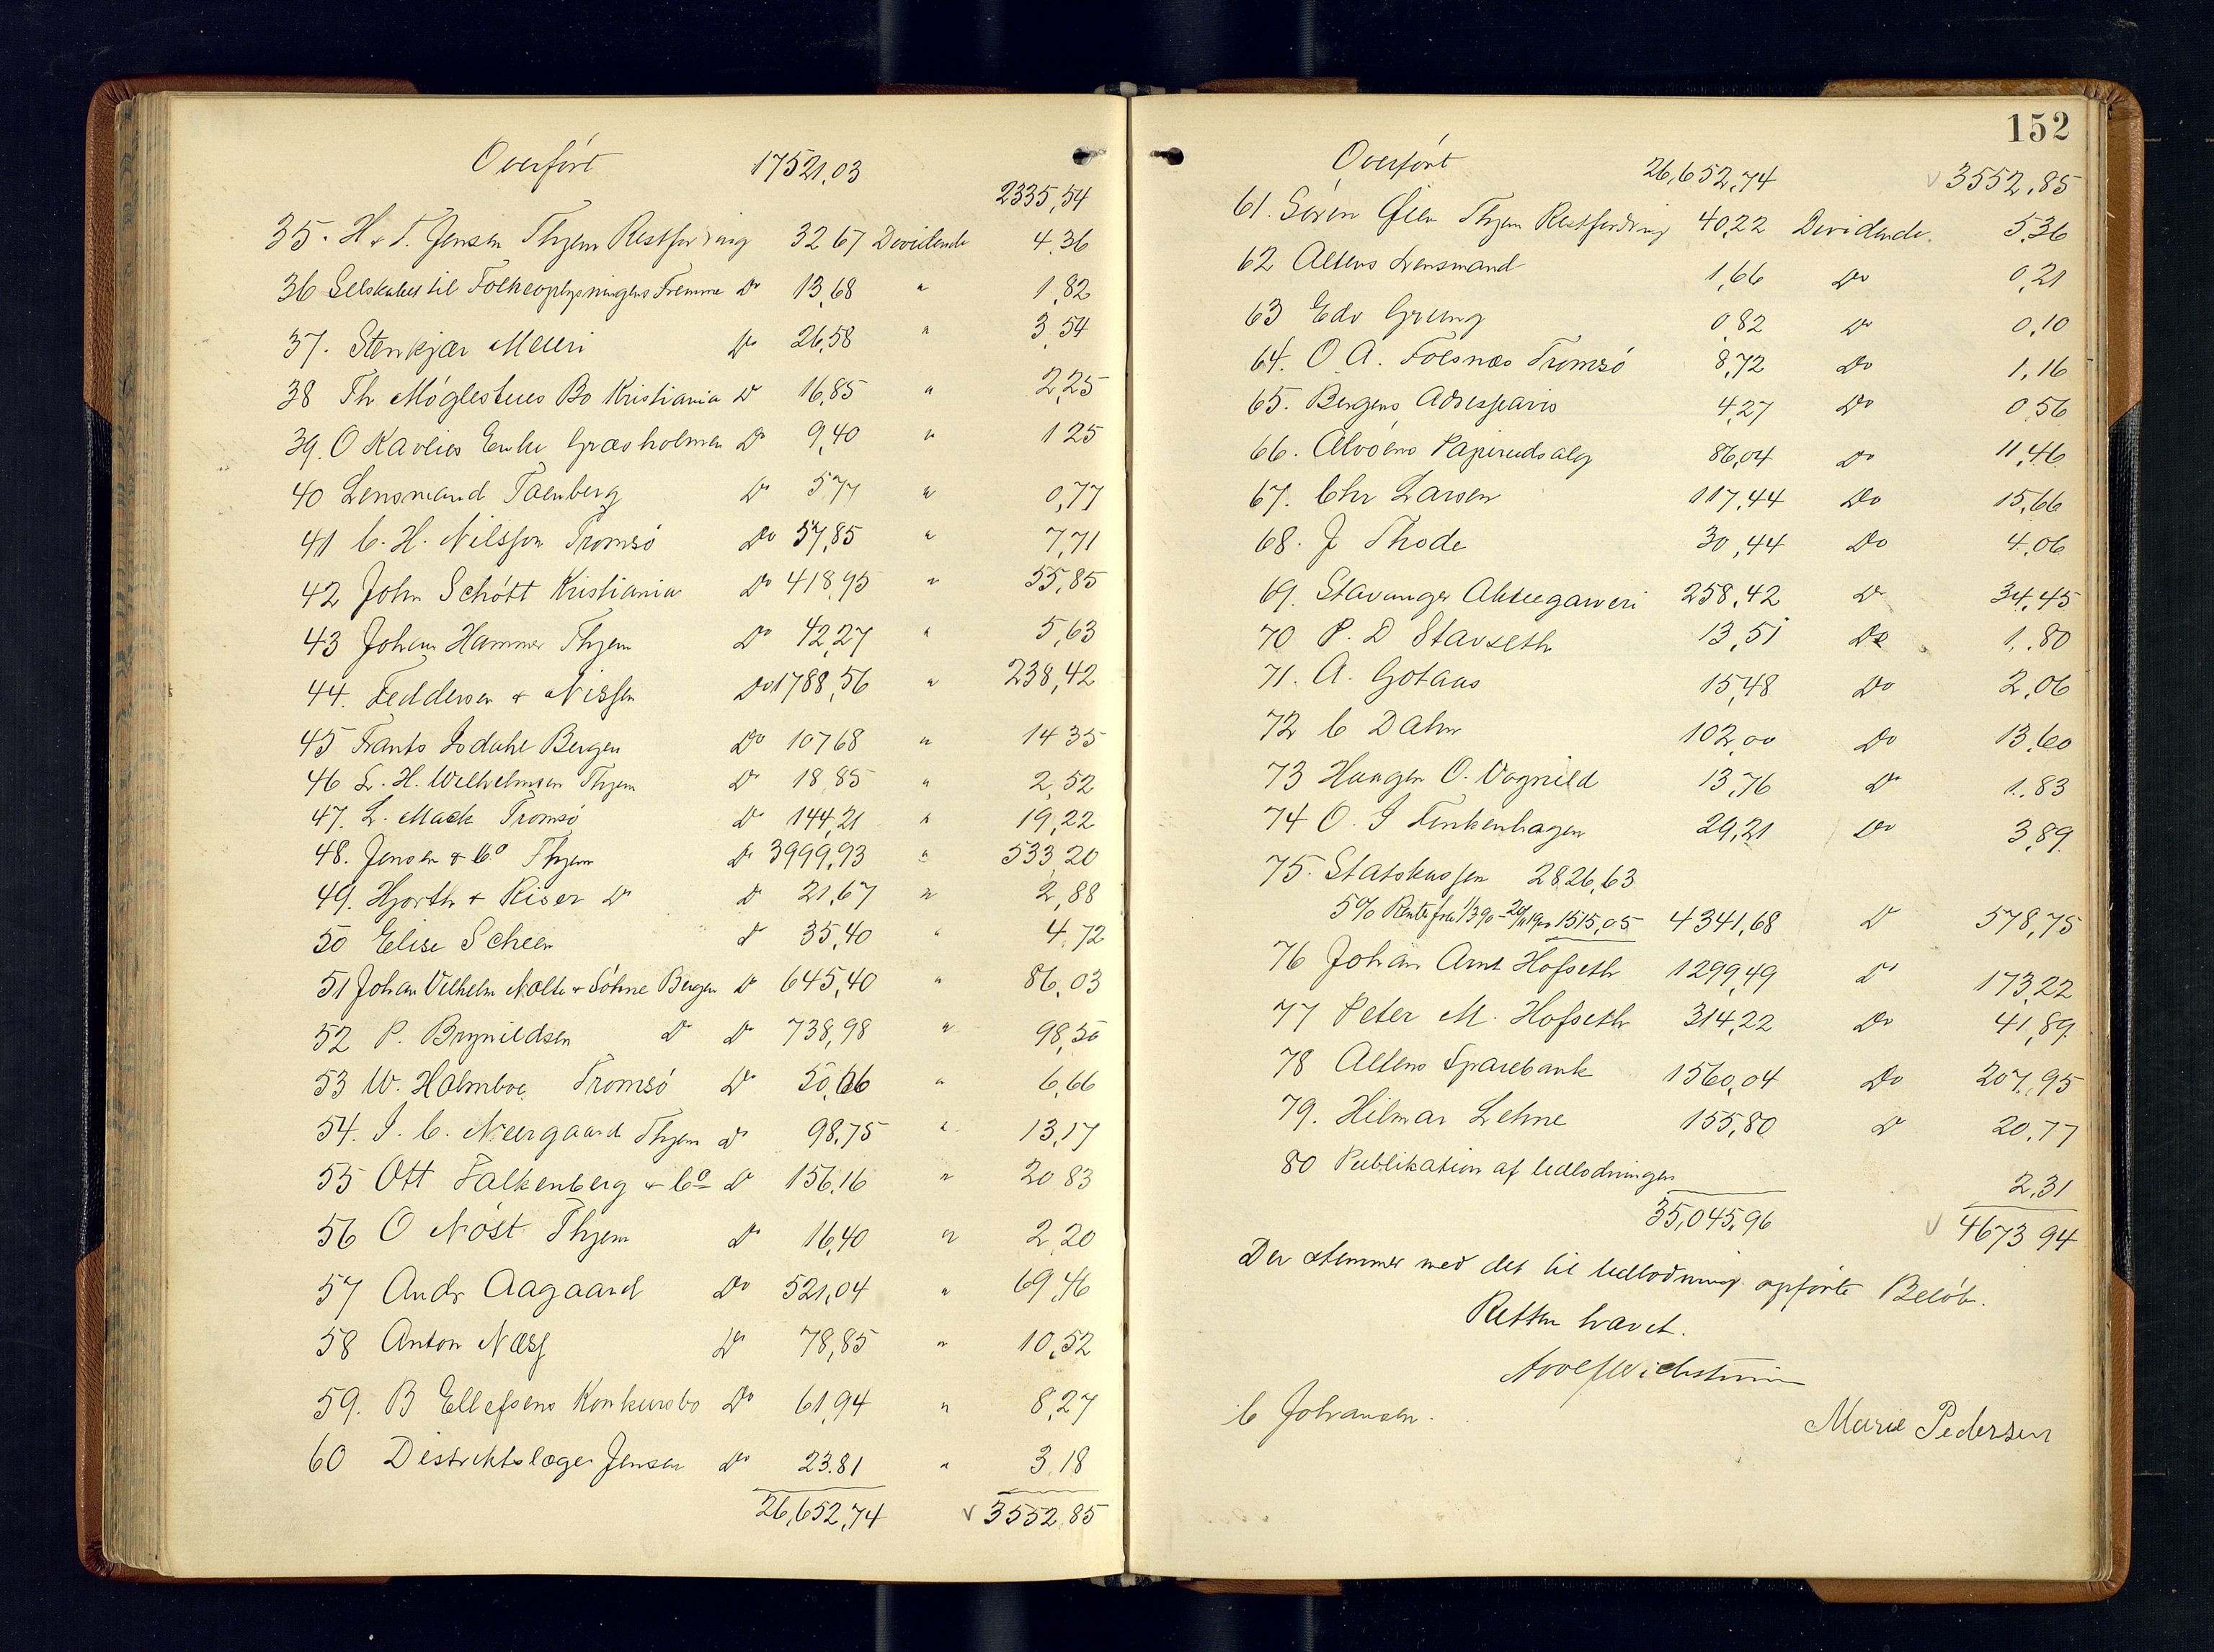 Overført 17521,03 2335,54
35. H & T. Jensen Thjem Restfordring 32 67 Dividende 4.36
36 Selskabet til Folkeoplysningens Fremme Do 13,68 " 1,82
37. Stenkjær Meieri Do 26,58 " 3,54
38 Th Møglestues Bo Kristiania Do 16,85 " 2,25
39. O Kavlies Enke Græsholmen Do 9,40 " 1 25
40 Lensmand Do 5,77 " 0,77
41 C. H. Nilssen Tromsø Do 57,85 " 7,71
42 John Schøtt Kristiania Do 418,95 " 55,85
43 Johan Hammer Thjem Do 42,27 " 5,63
44. Feddersen & Nissen Do 1788,56 " 238,42
45 Frants Isdahl Bergen Do 107 68 " 14 35
46 L. H. Wilhelmsen Thjem Do 18 85 " 2,52
47. L. Mack Tromsø Do 144,21 " 19,22
48. Jensen & Co Thjem Do 3999,93 " 533,20
49. Hjorth & Riser Do Do 21,67 " 2,88
50 Elise Scheen Do 35,40 " 4,72
51 Johan Vilhelm Nolte & Söhne Bergen Do 645,40 " 86,03
52 P. Brynildsen Do Do 738,98 " 98,50
53 W. Holmboe Tromsø Do 50,06 " 6,66
54. I. C. Neergaard Thjem Do 98,75 " 13,17
55 Ott Falkenberg & Co Do 156,16 " 20 83
56 O Nøst Thjem Do 16,40 " 2,20
57 Andr Aagaard Do 521,04 " 69,46
58 Anton Næss Do 78,85 " 10,52
59. B Ellefsens Konkursbo Do 61,94 " 8,27
60 Distriktslæge Jensen Do 23.81 " 3.18
26,652,74 " 3552,85
152
Overført 26,652,74 3552,85
61. Søren Øien Thjem Restfordring 40,22 Dividende 5,36
62 Altens Lensmand 1,66 Do 0,21
63 Edv Grung 0,82 Do 0,10
64. O. A. Folsnæs Tromsø 8,72 Do 1,16
65. Bergens Adresseavis 4,27 Do 0,56
66. Alvøens Papirudsalg 86,04 Do 11,46
67. Chr Larsen 117,44 Do 15,66
68. J Thode 30,44 Do 4,06
69. Stavanger Aktiegarveri 258,42 Do 34,45
70 P. D Stavseth 13,51 Do 1,80
71. A. Gotaas 15,48 Do 2,06
72 C Dahm 102,00 Do 13,60
73 Haagen O. Vognild 13,76 Do 1,83
74 O. I Finkenhagen 29,21 Do 3,89
75. Statskassen 2826,63
5% Rente fra 1/3 90 - 20/11 1900 1515,05 4341,68 Do 578,75
76 Johan Arnt Hofseth 1299,49 Do 173,22
77 Peter M. Hofseth 314,22 Do 41,89
78 Altens Sparebank 1560,04 Do 207,95
79. Hilmar Lehne 155,80 Do 20,77
80 Publikation af Udlodningen 2,31
35,045,96 4673 94
Der stemmer med det til Udlodning opførte Beløb.
Retten hævet.
C Johansen. Marie Pedersen